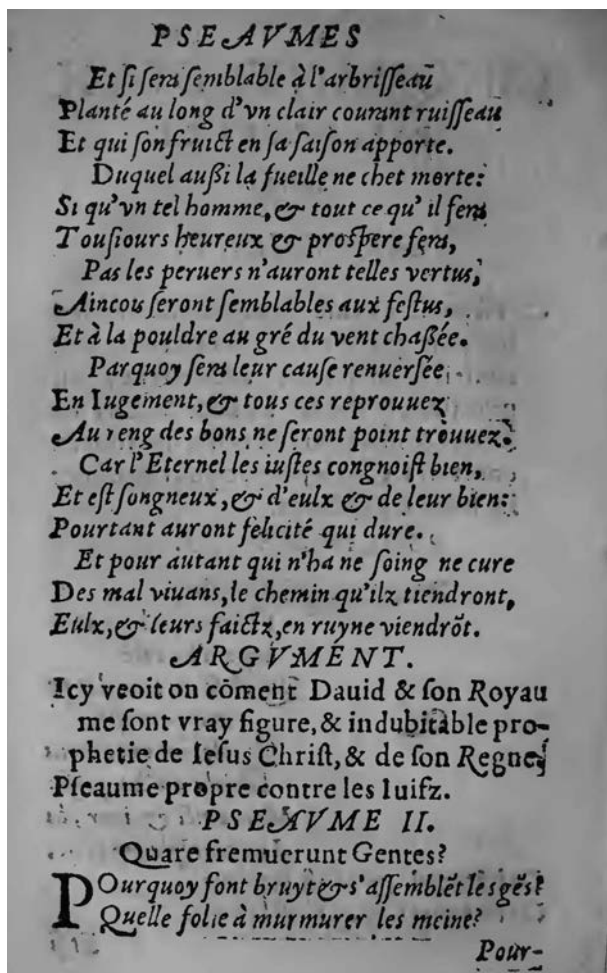 PSEAVMES
Et ſi ſera ſemblable à l'arbriſſeau
Planté au long d'vn clair courant ruiſſeau
Et qui ſon fruict en ſa ſaiſon apporte.
Duquel außi la fueille ne chet morte:
Si qu'vn tel homme, & tout ce qu'il fera
Touſiours heureux & proſpere ſera,
Pas les peruers n'auront telles vertus,
Aincou ſeront ſemblables aux feſtus,
Et à la pouldre au gré du vent chaßée.
Parquoy ſera leur cauſe renuerſée
En Iugement, & tous ces reprouuez
Au reng des bons ne ſeront point trouuez.
Car l'Eternel les iuſtes congnoiſt bien,
Et eſt ſongneux, & d'eulx & de leur bien:
Pourtant auront felicité qui dure.
Et pour autant qui n'ha ne ſoing ne cure
Des mal viuans, le chemin qu'ilz tiendront,
Eulx, & leurs faictz, en ruyne viendrõt.
ARGVMENT.
Icy veoit on cõment Dauid & ſon Royau
me ſont vray figure, & indubitable pro-
phetie de Ieſus Chriſt, & de ſon Regne,
Pſeaume propre contre les Iuifz.
PSEAVME II.
Quare fremuerunt Gentes?
POurquoy font bruyt & s'aſſemblẽt les gẽs?
Quelle folie à murmurer les meine?
Pour-